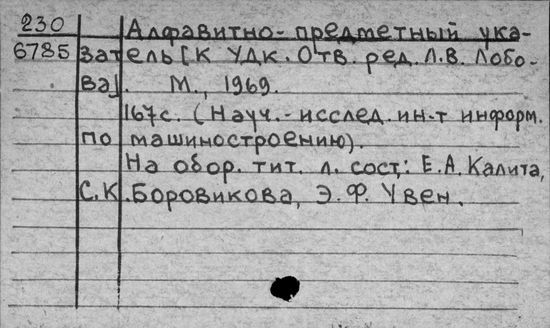 230 Алфавитно-предметный ука-
6785 затель [К УДК. Отв. ред. Л.В. Лобо-
ва]. М., 1969.
167с. (Науч.-исслед. ин-т информ.
по машиностроению).
На обор. тит. л. сост.: Е.А. Калита,
С.К. Боровикова, Э.Ф. Увен.